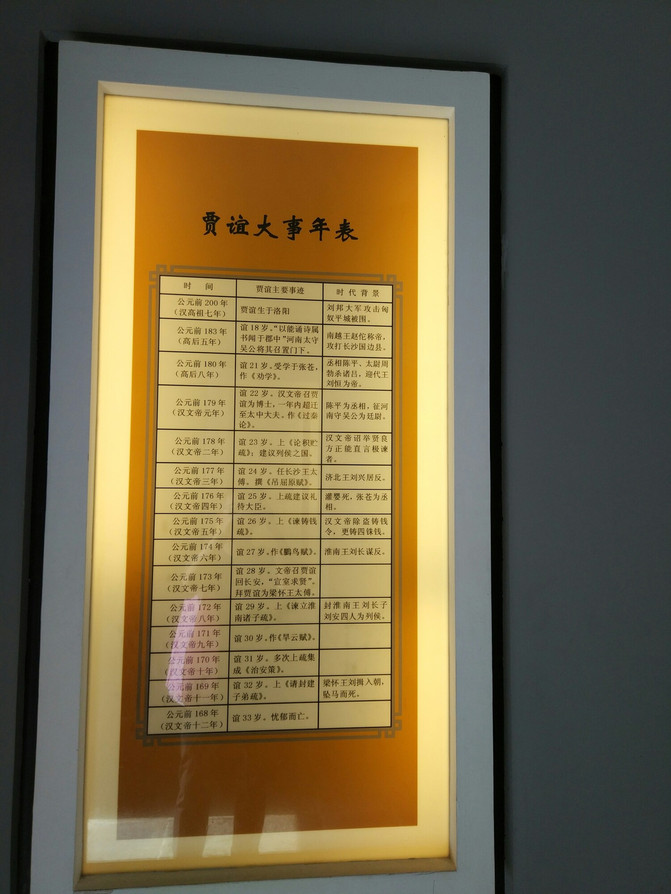 贾谊大事年表
时 间 贾谊主要事迹 时代背景
公元前200年
（汉高祖七年）
贾谊生于洛阳
刘邦大军攻击匈
奴平城被围。
公元前183年
（高后五年）
谊18岁。“以能诵诗属
书闻于郡中”河南太守
吴公将其召置门下。
南越王赵佗称帝，
攻打长沙国边县。
公元前180年
（高后八年）
谊21岁，受学于张苍，
作《劝学》。
丞相陈平、太尉周
勃杀诸吕，迎代王
刘恒为帝。
公元前179年
（汉文帝元年）
谊22岁。汉文帝召贾
谊为博士，一年内超迁
至太中大夫。作《过秦
论》。
陈平为丞相，征河
南守吴公为廷尉。
公元前178年
（汉文帝二年）
谊23岁。上《论积贮
疏》；建议列侯之国。
汉文帝诏举贤良
方正能直言极谏
者。
公元前177年
（汉文帝三年）
谊24岁。任长沙王太
傅。撰《吊屈原赋》。
济北王刘兴居反。
公元前176年
（汉文帝四年）
谊25岁。上疏建议礼
待大臣。
灌婴死，张苍为丞
相。
公元前175年
（汉文帝五年）
谊26岁。上《谏铸钱
疏》。
汉文帝除盗铸钱
令，更铸四铢钱。
公元前174年
（汉文帝六年）
谊27岁。作《鵩鸟赋》。
淮南王刘长谋反。
公元前173年
（汉文帝七年）
谊28岁。文帝召贾谊
回长安，“宣室求贤”。
拜贾谊为梁怀王太傅。
公元前172年
（汉文帝八年）
谊29岁。上《谏立淮
南诸子疏》。
封淮南王刘长子
刘安四人为列侯。
公元前171年
（汉文帝九年）
谊30岁。作《旱云赋》。
公元前170年
（汉文帝十年）
谊31岁。多次上疏集
成《治安策》。
公元前169年
（汉文帝十一年）
谊32岁。上《请封建
子弟疏》。
梁怀王刘揖入朝，
坠马而死。
公元前168年
（汉文帝十二年）
谊33岁。忧郁而亡。